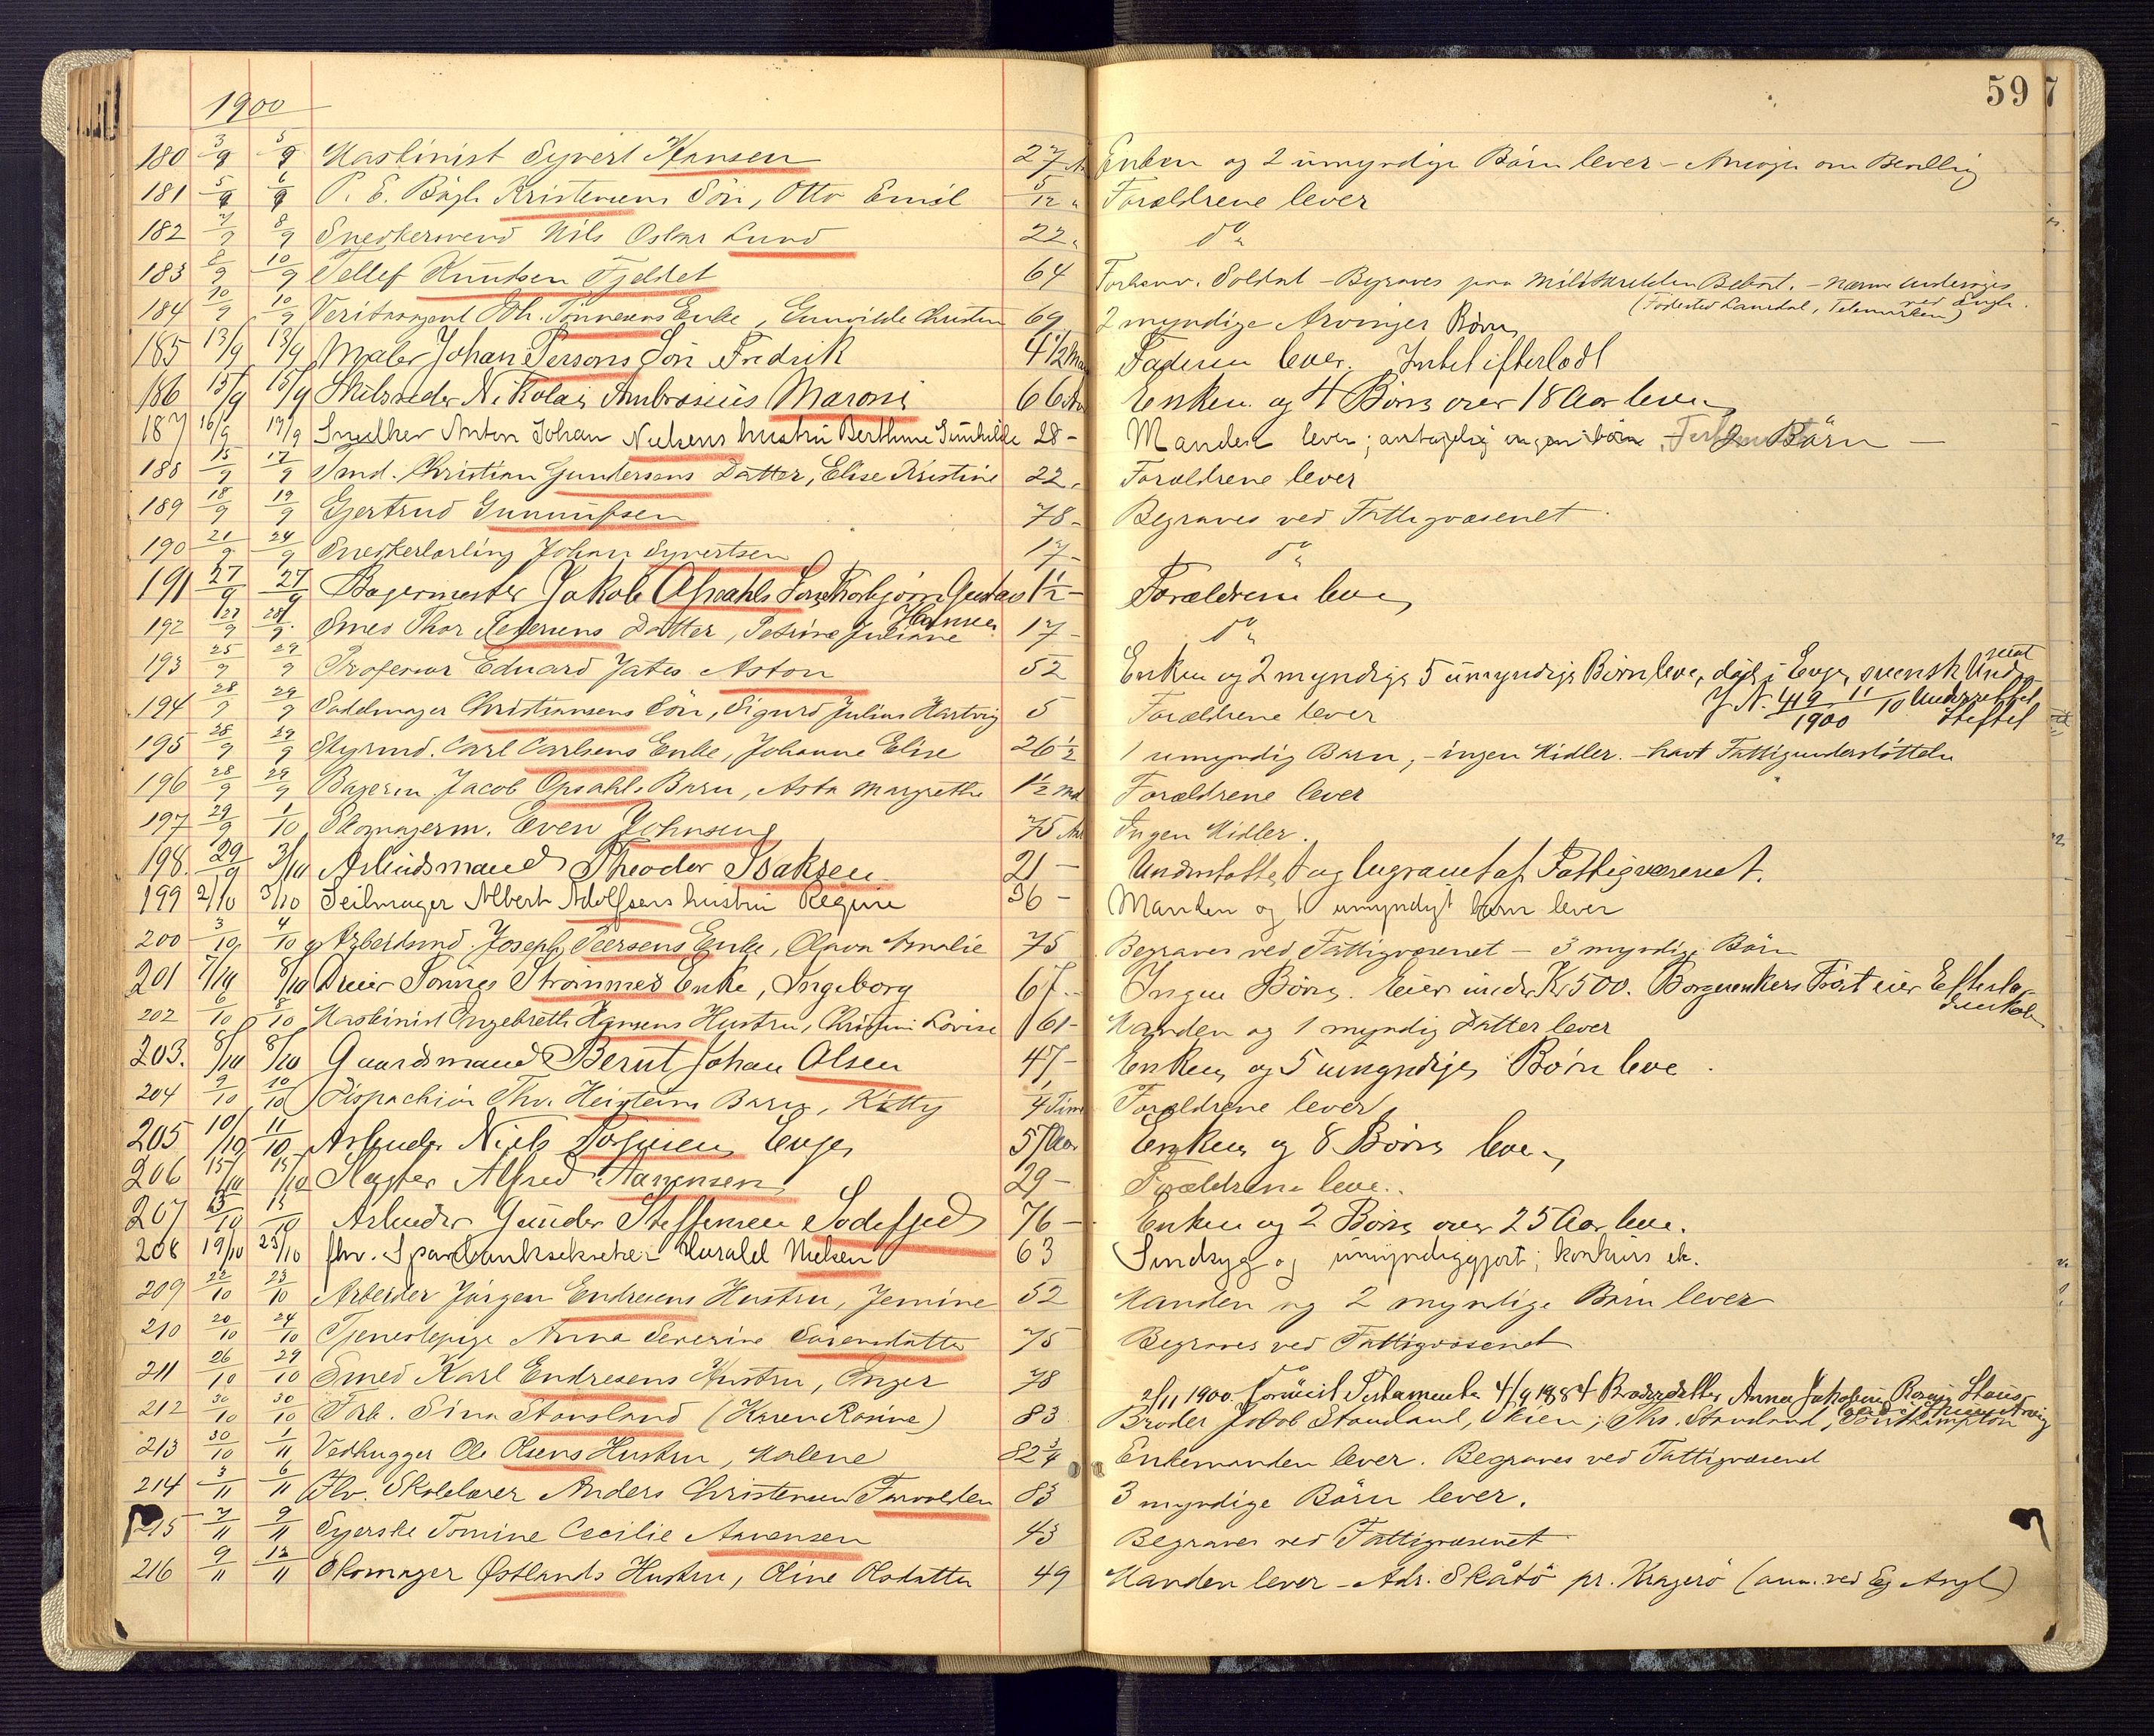 59 7
1900
180 3/9 5/9 Maskinist Syvert Hansen 27 Enken og 2 umyndige Börn lever -
181 5/9 6/9 P. E. Bägh Kristensens Sön, Otto Emil 5/12 Forældrene lever
182 7/9 8/9 Snedkersvend Nils Oskar Lund 22 do
183 8/9 10/9 Tellef Knudsen Fjeldet 64 Forhenv. Soldat - Begraves paa
(Fødested , Telemarken)
184 10/9 10/9 Veritasagent Tönnesens Enke, Gunvilde 69 2 myndige Arvinger Børn
185 13/9 13/9 Maler Johan Perssons Søn Fredrik 4 1/2 Faderen lever. Intet efterladt
186 15/9 15/9 Nikolai Ambrosius Maroni 66 Enken og 4 Børn over 18 Aar lever
187 16/9 17/9 Snedker Anton Johan Nielsens hustru Berthine Gunhilde 28 - Manden lever; ingen börn 2 Börn -
188 15/9 17/9 Smd. Christian Gundersens Datter, Elise Kristine 22 Forældrene lever
189 18/9 19/9 Gjertrud Gunnufsen 78 - Begraves ved Fattigvæsenet
190 21/9 24/9 Snedkerlærling Johan Syvertsen 17 - do
191 27/9 27/9 Bagermester Jakob Opsahls Søn Thorbjørn Gustav 1 1/2 - Forældrene lever
Hansea
192 27/9 28/9 Smed Thor Datter, Petrine Juliane 17 - do
193 25/9 29/9 Professor Eduard Jates Aston 52 Enken og 2 myndige 5 umyndige Børn leve, død i Evje, svensk Unds
J N. 419/1900 11/10
194 28/9 29/9 Sadelmager Christiansens Sön, Sigurd Julius Hartvig 5 Forældrene lever
195 28/9 29/9 Styrmd. Carl Carlsens Enke, Johanne Elise 26 1/2 1 umyndig Barn, - ingen Midler. - havt Fattigunderstöttelse
196 28/9 29/9 Bagerm Jacob Opsahls Barn, Asta Margrethe 1 1/2 Md Forældrene lever
197 29/9 1/10 Skomagerm. Even Johnsen 75 Ingen Midler.
198. 29/9 3/10 Arbeidsmand Theodor Isaksen 21 - Understøttet og begravet af Fattigvæsenet.
199 2/10 3/10 Seilmager Albert Adolfsens hustru Regine 36 - Manden og 1 umyndigt barn lever
200 3/10 4/10 Arbeidsmd. Joseph Peersens Enke, Olava Amalie 75 Begraves ved Fattigvæsenet - 3 myndige Börn
201 7/10 8/10 Dreier Tönnes Strømmes Enke, Ingeborg 67 - Ingen Børn. Eier under Kr 500.
202 6/10 8/10 Maskinist Ingebreth Hansens Hustru, Lovise 61 - Manden og 1 myndig Datter lever
203. 8/10 8/10 Gaardsmand Bernt Johan Olsen 47 - Enken og 5 umyndige Børn leve.
204 9/10 10/10 Dispachiör Thv. Heisteins Barn, Kitty 4 Tim Forældrene lever
205 10/10 11/10 Arbeider Niels Evje 57 Aar Enken og 8 Børn leve
206 15/10 15/10 Slagter Alfred Aanensen 29 - Forældrene leve.
207 15/10 15/10 Arbeider Gunder Steffensen Sødefjed 76 - Enken og 2 Børn over 25 Aar leve.
208 19/10 23/10 fhv. Sparebanksekretær Harald Nielsen 63 Sindsyg og umyndiggjort; konkurs etc.
209 22/10 23/10 Arbeider Jörgen Endresens Hustru, Jemine 52 Manden og 2 myndige Börn lever
210 20/10 24/10 Tjenestepige Anna Severine Sörensdatter 75 Begraves ved Fattigvæsenet
211 26/10 29/10 Smed Karl Endresens Hustru, Inger 78 do
2/11 1900 Testamente 4/9 1884 Broderdatter Anna Jakobine
212 30/10 30/10 Frk. Sina Stousland (Karen Rosine) 83 Broder Jakob Stousland, Skien; Chs. Stousland,
213 30/10 1/11 Vedhugger Ole Olsens Hustru, Malene 82 3/4 Enkemanden lever. Begraves ved Fattigvæsenet
214 3/11 6/11 Fhv. Skolelærer Anders Christensen 83 3 myndige Börn lever.
215 7/11 9/11 Syerske Tomine Cecilie Aanensen 43 Begraves ved Fattigvæsenet
216 9/11 12/11 Skomager Østlands Hustru, Oline Olsdatter 49 Manden lever - Adr. Skåtö pr. Kragerö (anm. ved Eg Asyl)